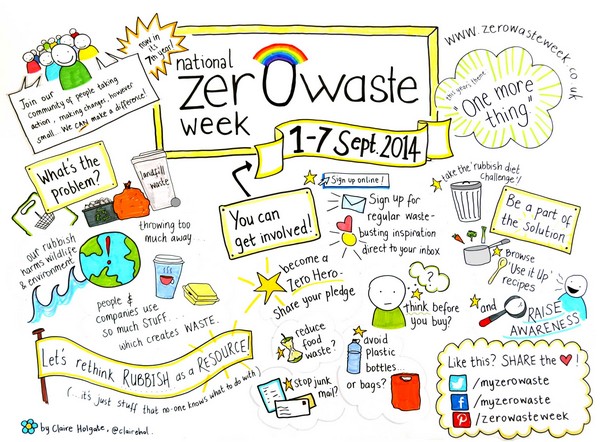 now in
its
7th year!
national
zerowaste
week
1-7 Sept. 2014
www.zerowasteweek.co.uk
this years theme
"One more
thing"
Join our
community of people taking
action, making changes, however
small. We CAN make a difference!
What's the
problem?
landfill
waste
throwing too
much away...
our rubbish
harms wildlife
& environment
people &
companies use
so much STUFF...
which creates WASTE.
You can
get involved!
Sign up online!
Sign up for
regular waste-
busting inspiration
direct to your inbox
become a
Zero Hero.
Share your pledge
think before
you buy?
reduce
food
waste?
stop junk
mail?
avoid
plastic
bottles...
or bags?
take the 'rubbish diet
challenge'!
Be a part of
the solution
Browse
'Use it Up'
recipes
and
RAISE
AWARENESS
Let's rethink RUBBISH as a RESOURCE!
(...it's just stuff that no-one knows what to do with)
by Claire Holgate, @clairehol.
Like this? SHARE the ♥!
/myzerowaste
/myzerowaste
/zerowasteweek